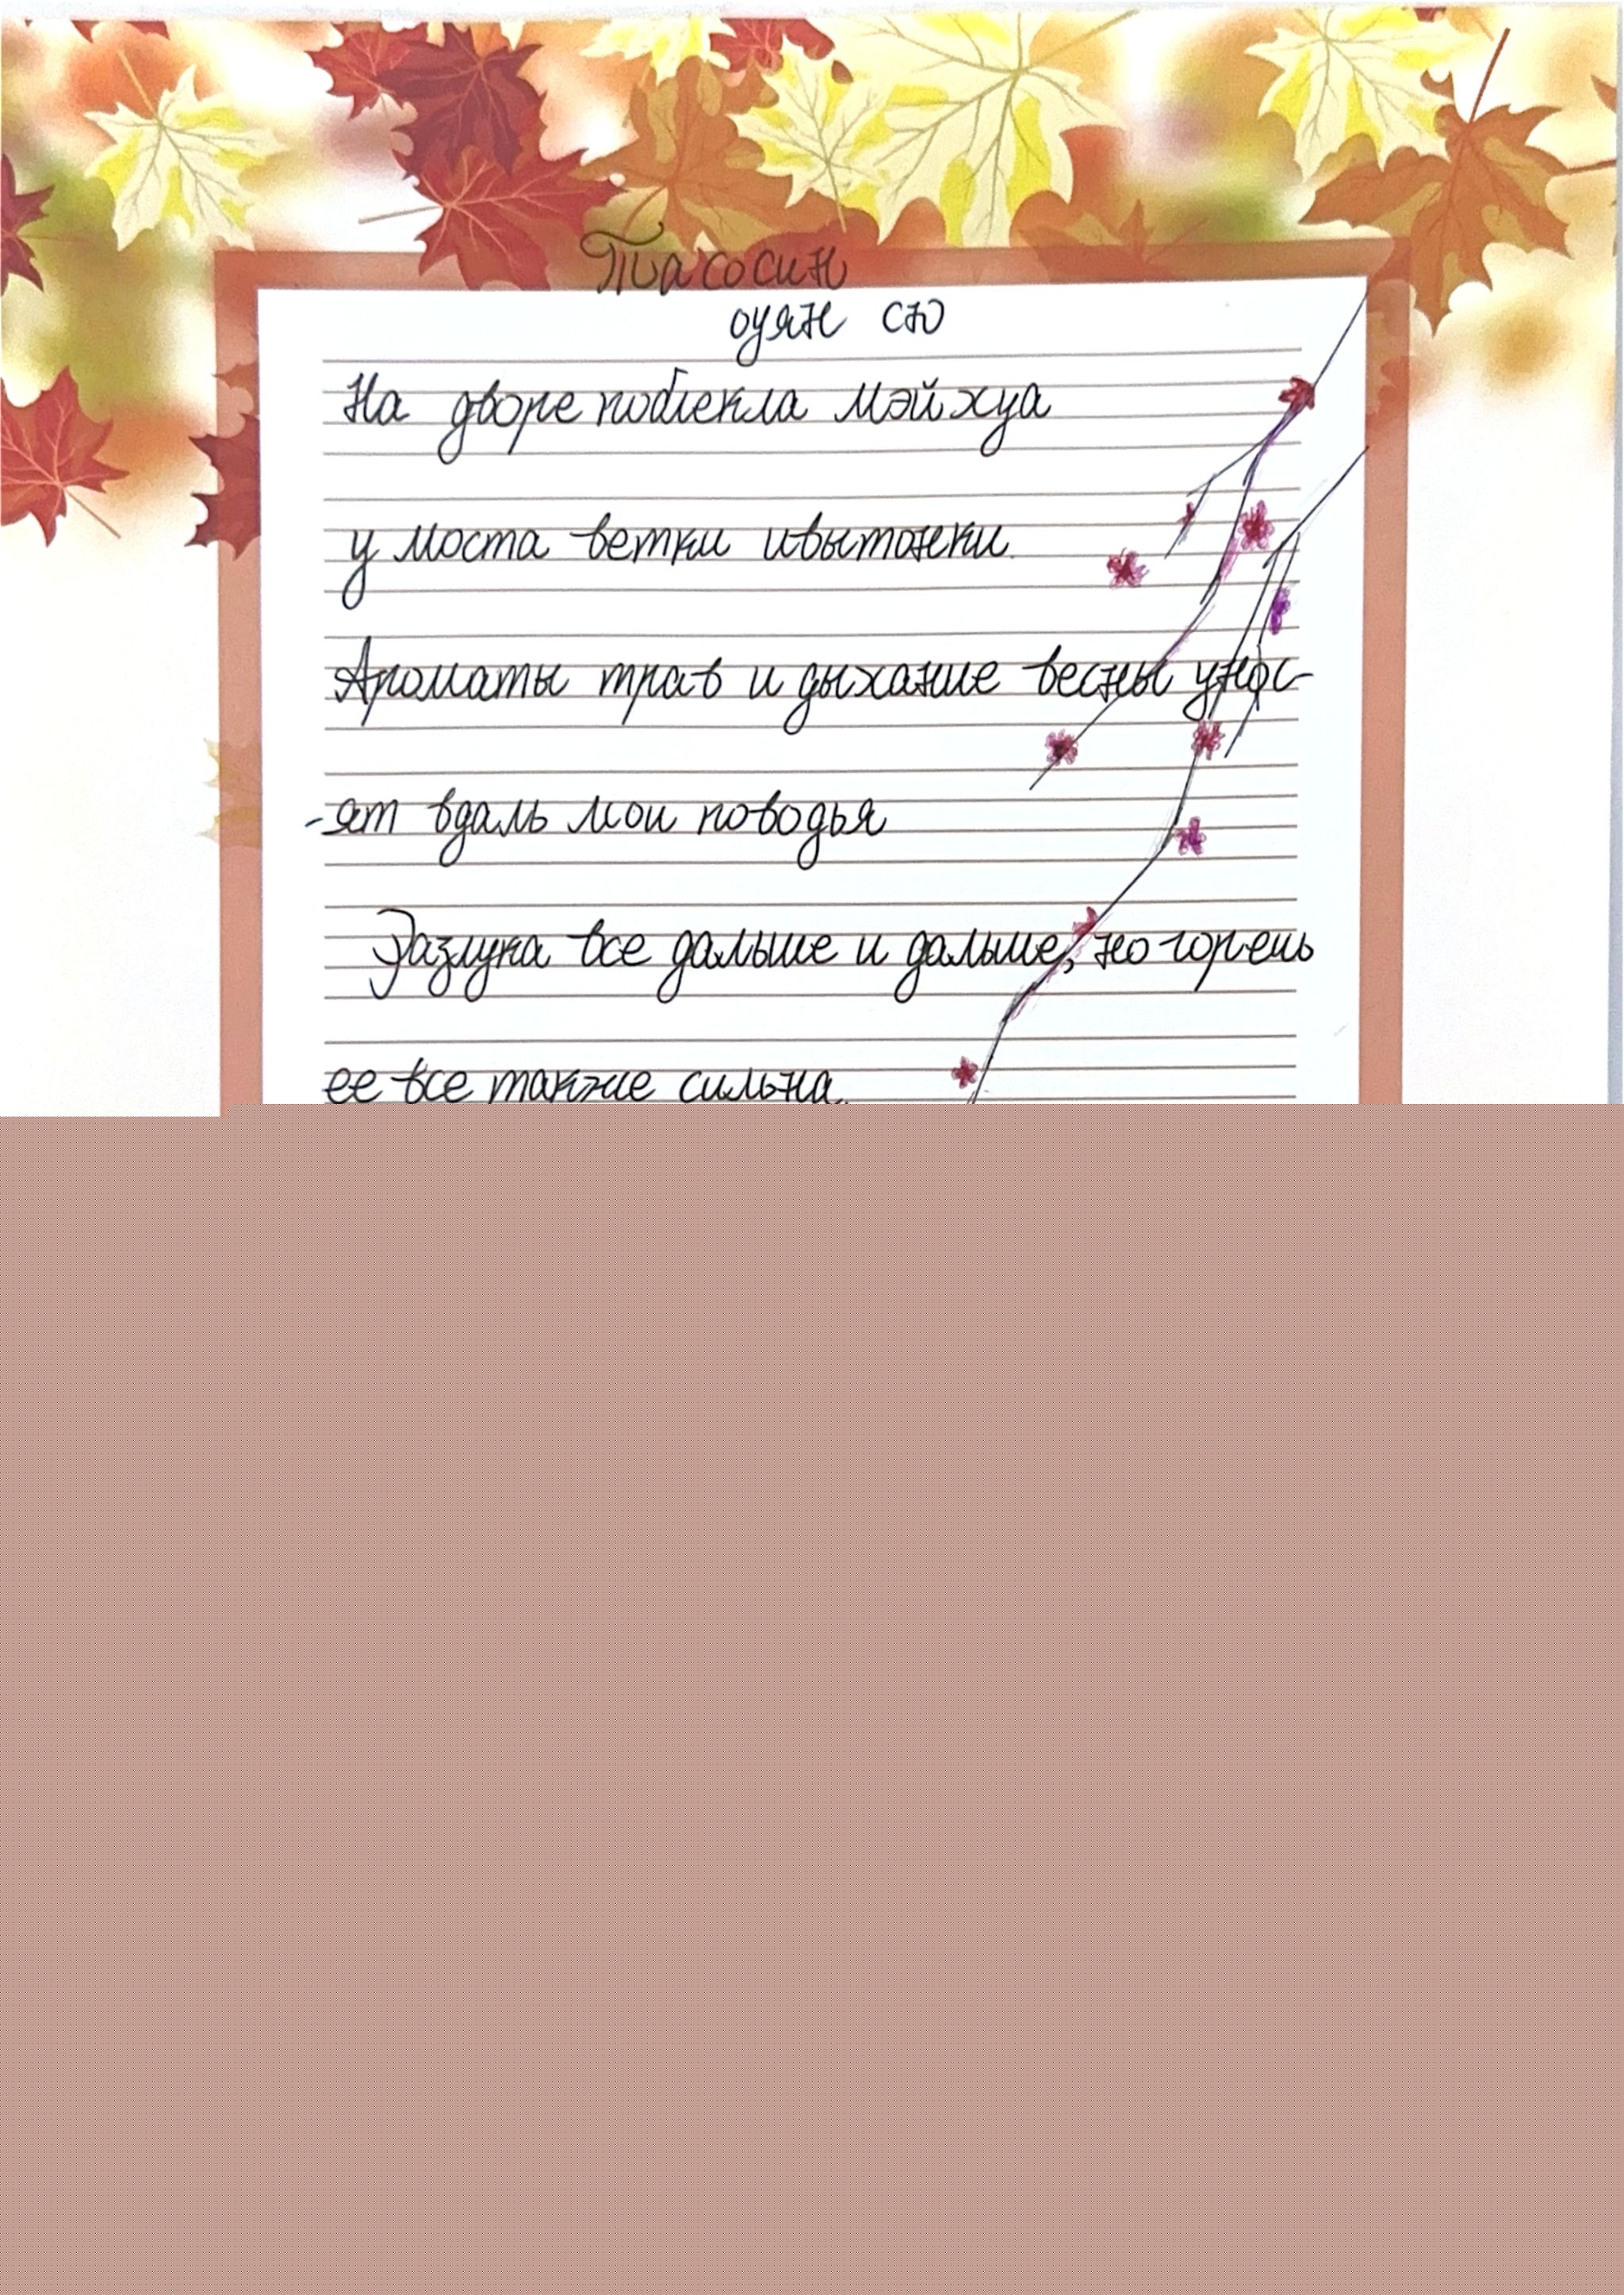 Тасосин
оуян сю
На дворе поблекла мэйхуа
у моста ветки ивы тонки.
Ароматы трав и дыхание весны унос-
-ят вдаль мои поводья
Разлука все дальше и дальше, но горечь
ее все также сильна.